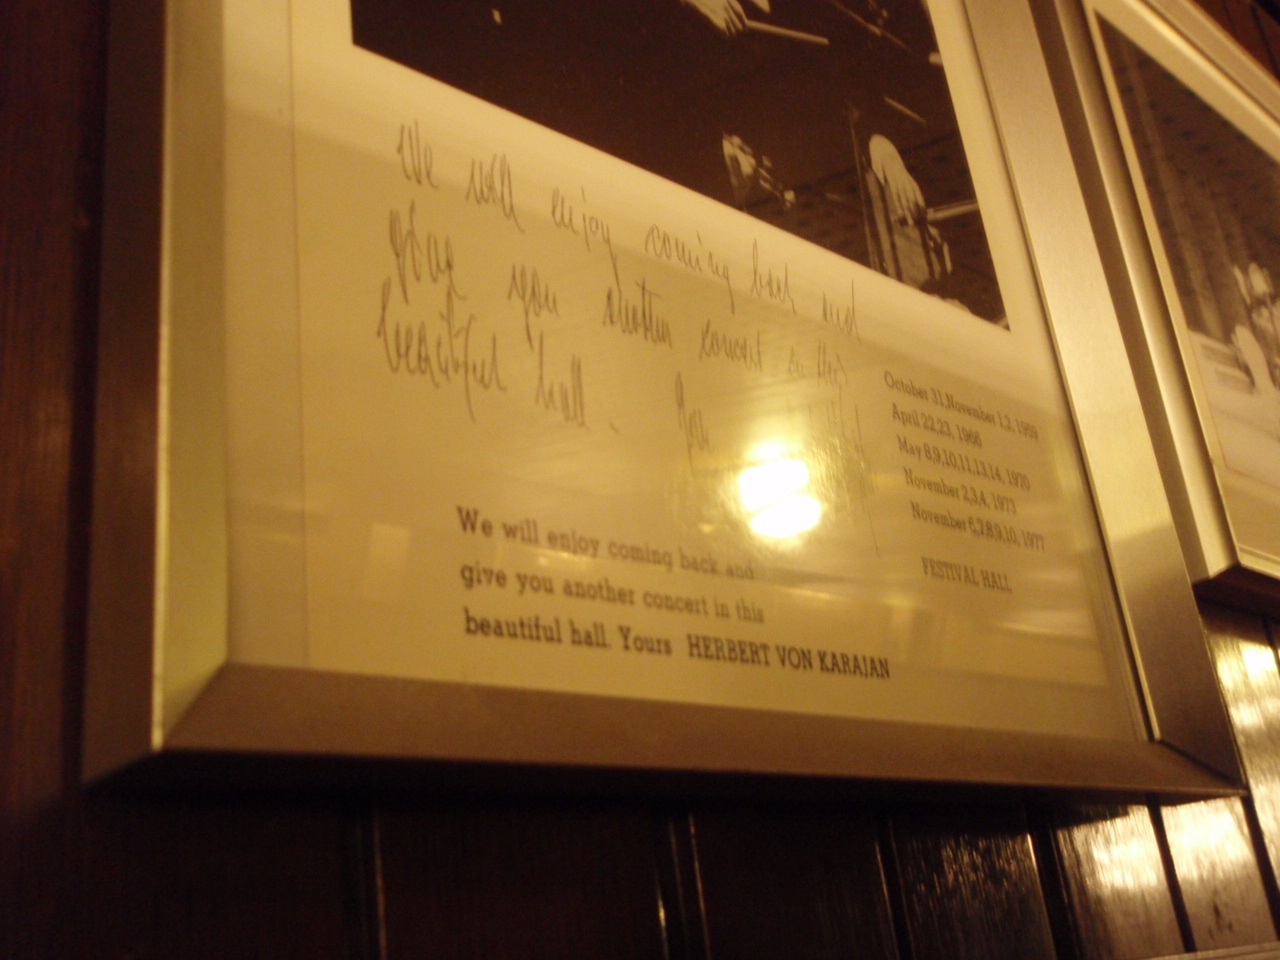 We will enjoy coming back and
give you another concert in this
beautiful hall.
October 31, November 1,2, 1959
April 22,23, 1966
May 8,9,10,11,13,14, 1970
November 2,3,4, 1973
November 6,7,8,9,10, 1977
FESTIVAL HALL
We will enjoy coming back and
give you another concert in this
beautiful hall. Yours HERBERT VON KARAJAN